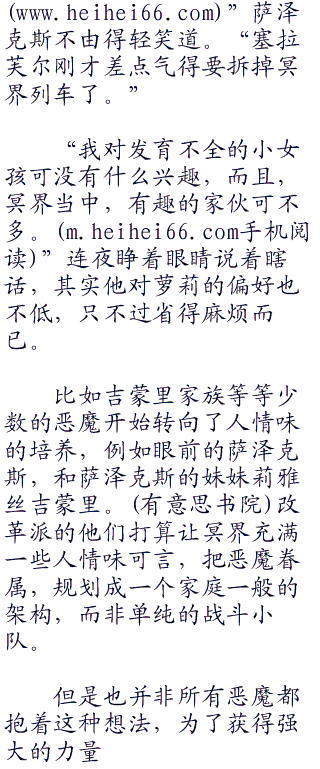 (www.heihei66.com)”萨泽
克斯不由得轻笑道。“塞拉
芙尔刚才差点气得要拆掉冥
界列车了。”
“我对发育不全的小女
孩可没有什么兴趣，而且，
冥界当中，有趣的家伙可不
多。(m.heihei66.com手机阅
读)”连夜睁着眼睛说着瞎
话，其实他对萝莉的偏好也
不低，只不过省得麻烦而
已。
比如吉蒙里家族等等少
数的恶魔开始转向了人情味
的培养，例如眼前的萨泽克
斯，和萨泽克斯的妹妹莉雅
丝吉蒙里。(有意思书院)改
革派的他们打算让冥界充满
一些人情味可言，把恶魔眷
属，规划成一个家庭一般的
架构，而非单纯的战斗小
队。
但是也并非所有恶魔都
抱着这种想法，为了获得强
大的力量